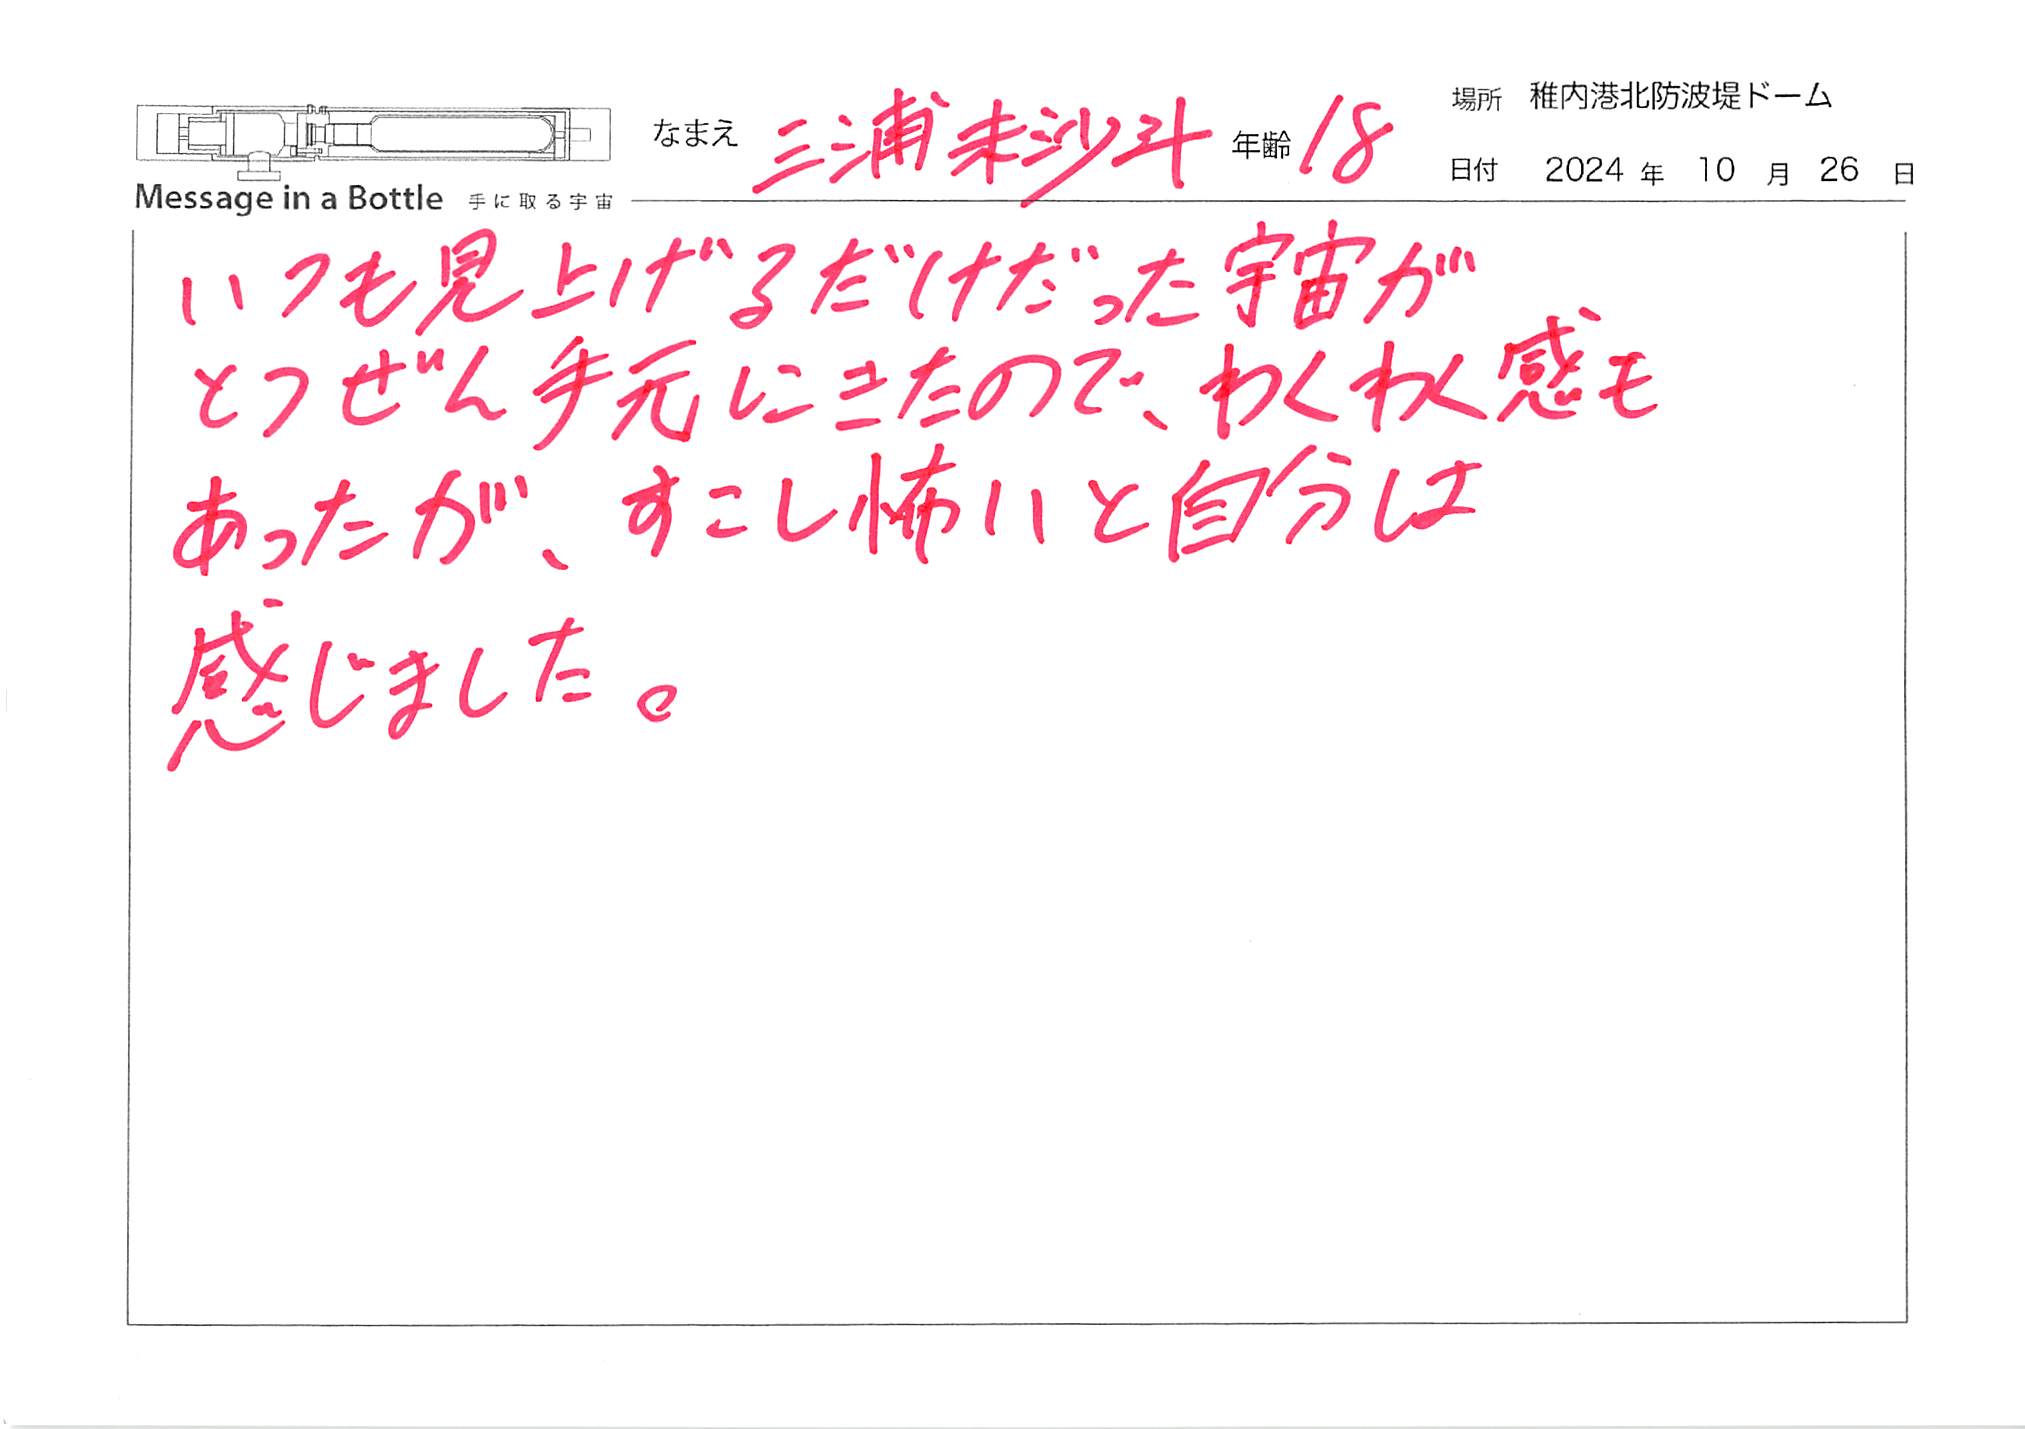 なまえ 三浦未沙斗 年齢 18
場所 稚内港北防波堤ドーム
日付 2024 年 10 月 26 日
Message in a Bottle 手に取る宇宙
いつも見上げるだけだった宇宙が
とつぜん手元にきたので、わくわく感も
あったが、すこし怖いと自分は
感じました。